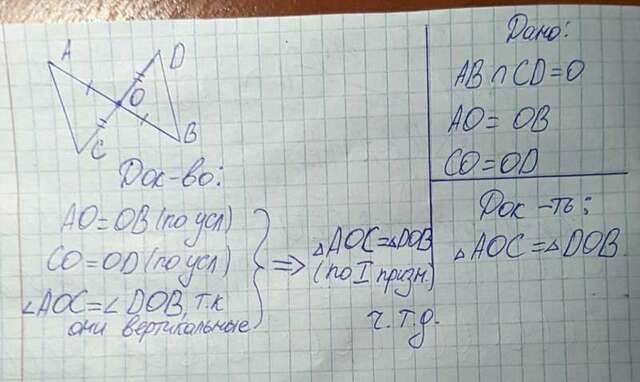 A
D
O
C
B
Дано:
AB ∩ CD = O
AO = OB
CO = OD
Док-ть:
△AOC = △DOB
Док-во:
AO = OB (по усл)
CO = OD (по усл)
∠AOC = ∠DOB, т.к
они вертикальные
⇒ △AOC = △DOB
(по I призн.)
ч.т.д.